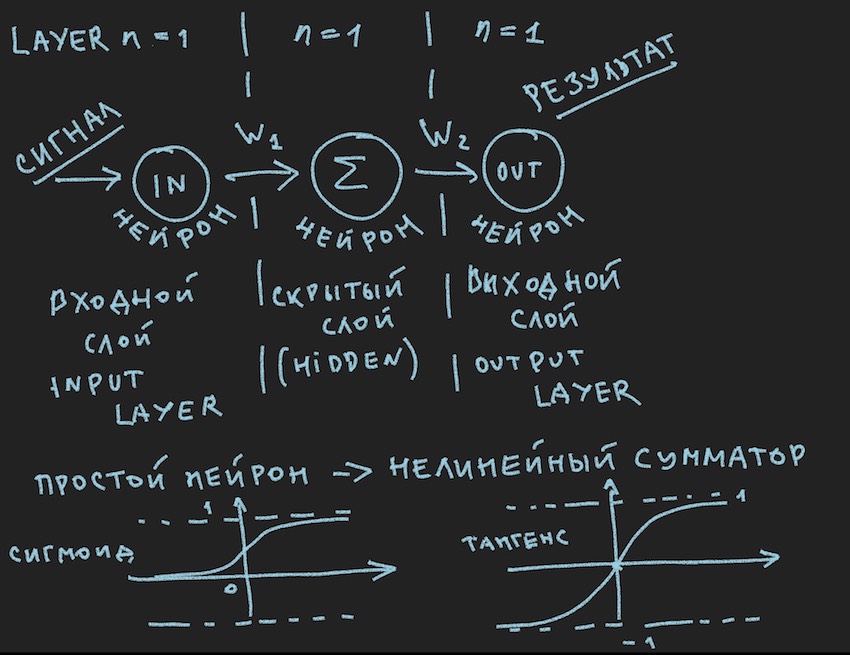 LAYER n = 1 | n = 1 | n = 1
РЕЗУЛЬТАТ
СИГНАЛ
W1
W2
IN
Σ
OUT
НЕЙРОН
НЕЙРОН
НЕЙРОН
ВХОДНОЙ
СЛОЙ
INPUT
LAYER
СКРЫТЫЙ
СЛОЙ
(HIDDEN)
ВЫХОДНОЙ
СЛОЙ
OUTPUT
LAYER
ПРОСТОЙ НЕЙРОН -> НЕЛИНЕЙНЫЙ СУММАТОР
1
СИГМОИД
0
1
ТАНГЕНС
-1